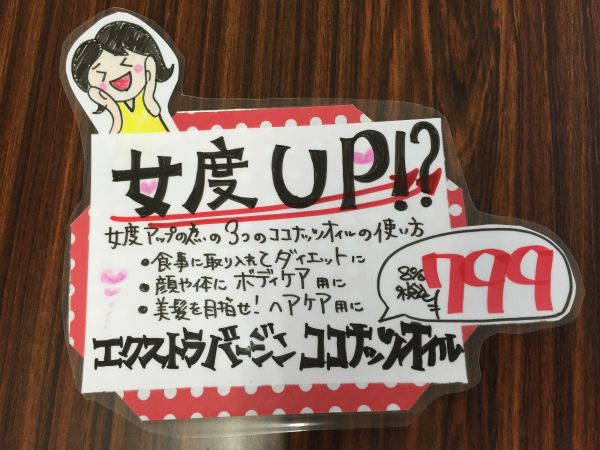 女度UP!?
女度アップの為の3つのココナッツオイルの使い方
・食事に取り入れてダイエットに
・顔や体にボディケア用に
・美髪を目指せ!ヘアケア用に
エクストラバージンココナッツオイル
8%
税込
¥799